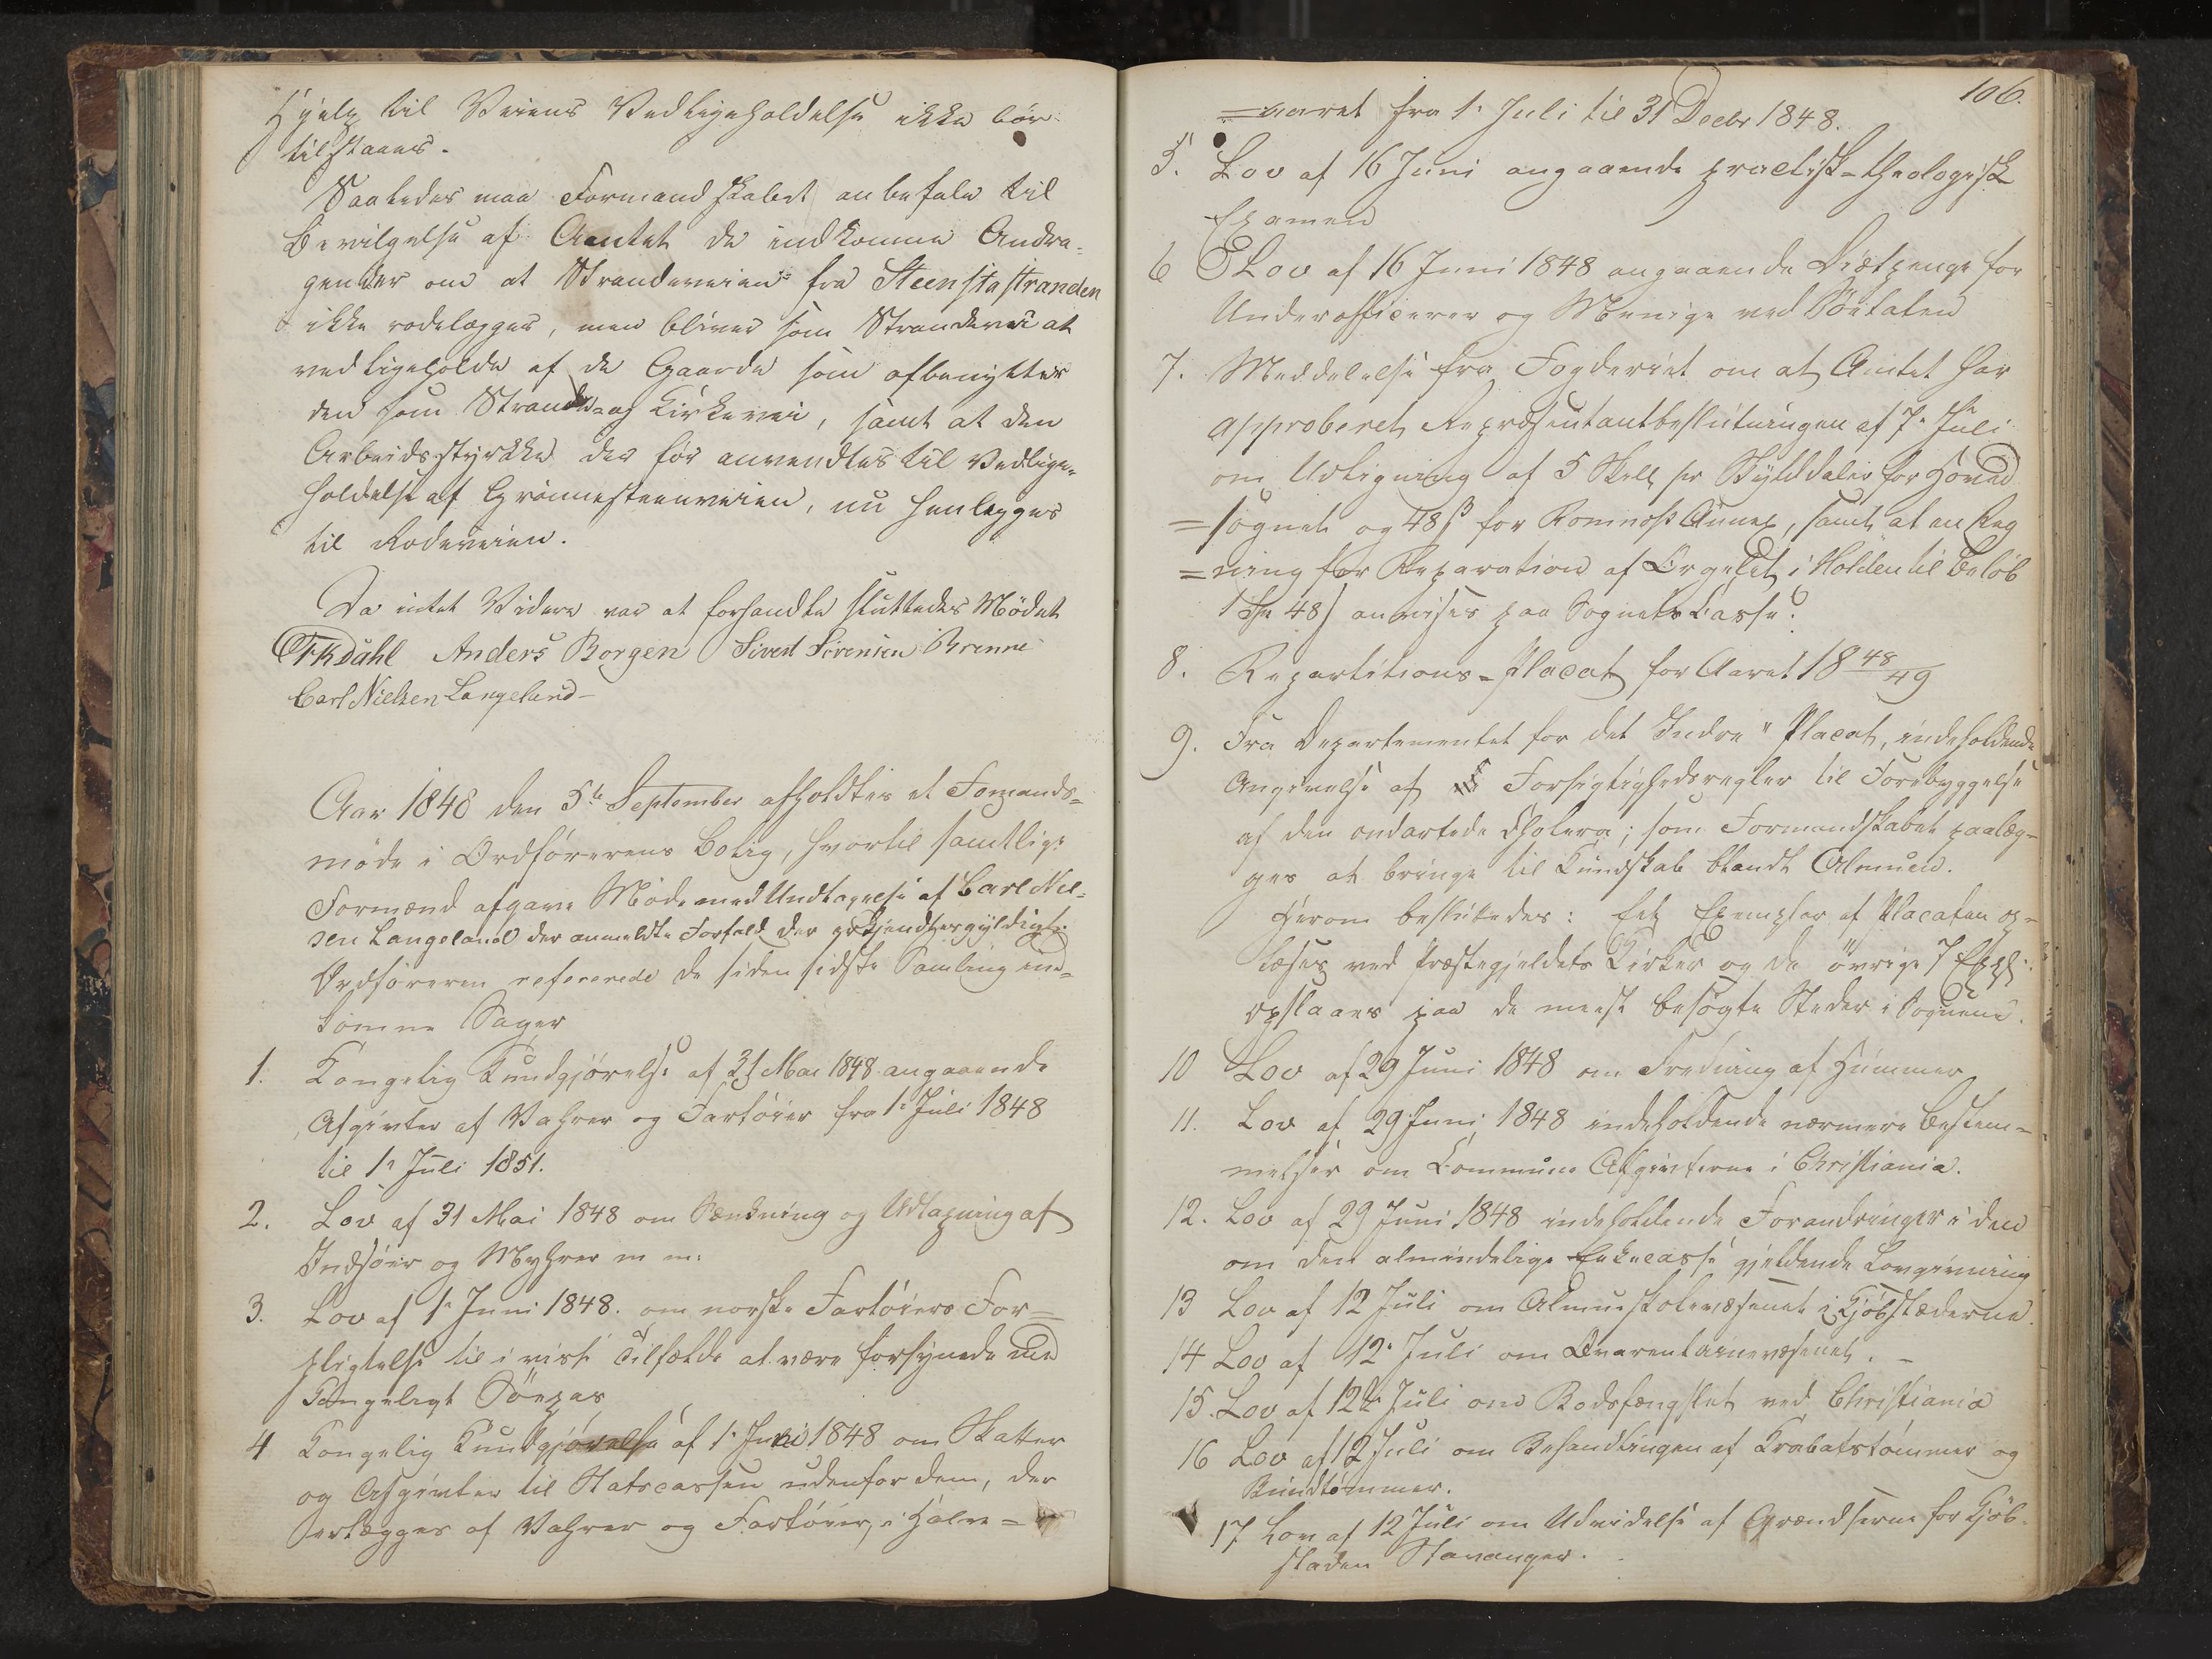 Hjelp til Veiens Vedligeholdelse ikke bør
tilstaaes.
Saaledes maa Formandskabet anbefale til
Bevilgelse af Amtet de indkomne Andra-
gender om at Strandeveien fra Steenstastranden
ikke rodelægges, men bliver som Strandevei at
vedligeholde af de Gaarde som afbenytter
den som Strande- og Kirkevei, samt at den
Arbeidsstyrkke der før anvendtes til Vedlige-
holdelse af Grønnesteenveien, nu henlegges
til Rodeveien.
Da intet Videre var at forhandle sluttedes Mødet
Dahl Anders Borgen Sivert Sivensen Brenne
Carl Nielsen Langeland
Aar 1848 den 5te September afholdtes et Formands-
møde i Ordførerens Bolig, hvortil samtlige
Formænd afgave Møde med Undtagelse af Carl Niel-
sen Langeland der anmeldte Forfald der erkjendtes gyldigt.
Ordføreren refererede de siden sidste Samling ind-
komne Sager
1. Kongelig Kundgjørelse af 31 Mai 1848 angaaende
Afgivter af Vahrer og Fartøier fra 1ste Juli 1848
til 1ste Juli 1851.
2. Lov af 31 Mai 1848 om Sænkning og Udtapning af
Indsøer og Myhrer m m:
3. Lov af 1ste Juni 1848. om norske Fartøiers For=
pligtelse til i visse Tilfælde at være forsynede med
Kongeligt Söepas
4 Kongelig Kundgjørelse af 1ste Juni 1848 om Skatter
og Afgivter til Statscassen udenfor dem, der
erlægges af Vahrer og Fartøier, i Halv=
106.
=aaret fra 1ste Juli til 31 Decbr 1848.
5. Lov af 16 Juni angaaende practisk-theologisk
Examen
6 Lov af 16 Juni 1848 angaaende Diætpenge for
Underofficerer og Menige ved Söetaten
7. Meddelelse fra Fogderiet om at Amtet har
approberet Repræsentantbeslutningen af 7de Juli
om Udligning af 5 Skell pr Skylddaler for Hoved
=sognet og 48 s for Romnæs Annex, samt at en Reg
=ning for Reparation af Orgelet i Holden til Beløb
1 Spd 48 s anvises paa Sognets Casse.
8. Repartitions-Placat for Aaret 18 48/49
9. Fra Departementet for det Indre "Placat, indeholdende
Angivelse af Forsigtighedsregler til Forebyggelse
af den ondartede Cholera; som Formandskabet paalæg-
ges at bringe til Kundskab blandt Almuen.
Herom besluttedes: Et Exemplar af Placaten op-
læses ved Præstegjeldets Kirker og de övrige 7 Expl:
opslaaes paa de meest besøgte Steder i Sognene.
10 Lov af 29 Juni 1848 om Fredning af Hummer
11. Lov af 29 Juni 1848 indeholdende nærmere Bestem-
melser om Commune Afgivterne i Christiania.
12. Lov af 29 Juni 1848 indeholdende Forandringer i den
om den almindelige Enkecasse gjeldende Lovgivning
13 Lov af 12 Juli om Almueskolevæsenet i Kjøbstæderne.
14 Lov af 12te Juli om Qvarentainevæsenet. -
15. Lov af 12te Juli om Bodsfængslet ved Christiania
16 Lov af 12 Juli om Behandlingen af Krabatstømmer og
Bundtømmer.
17 Lov af 12 Juli om Udvidelse af Grændserne for Kjøb-
staden Stavanger.